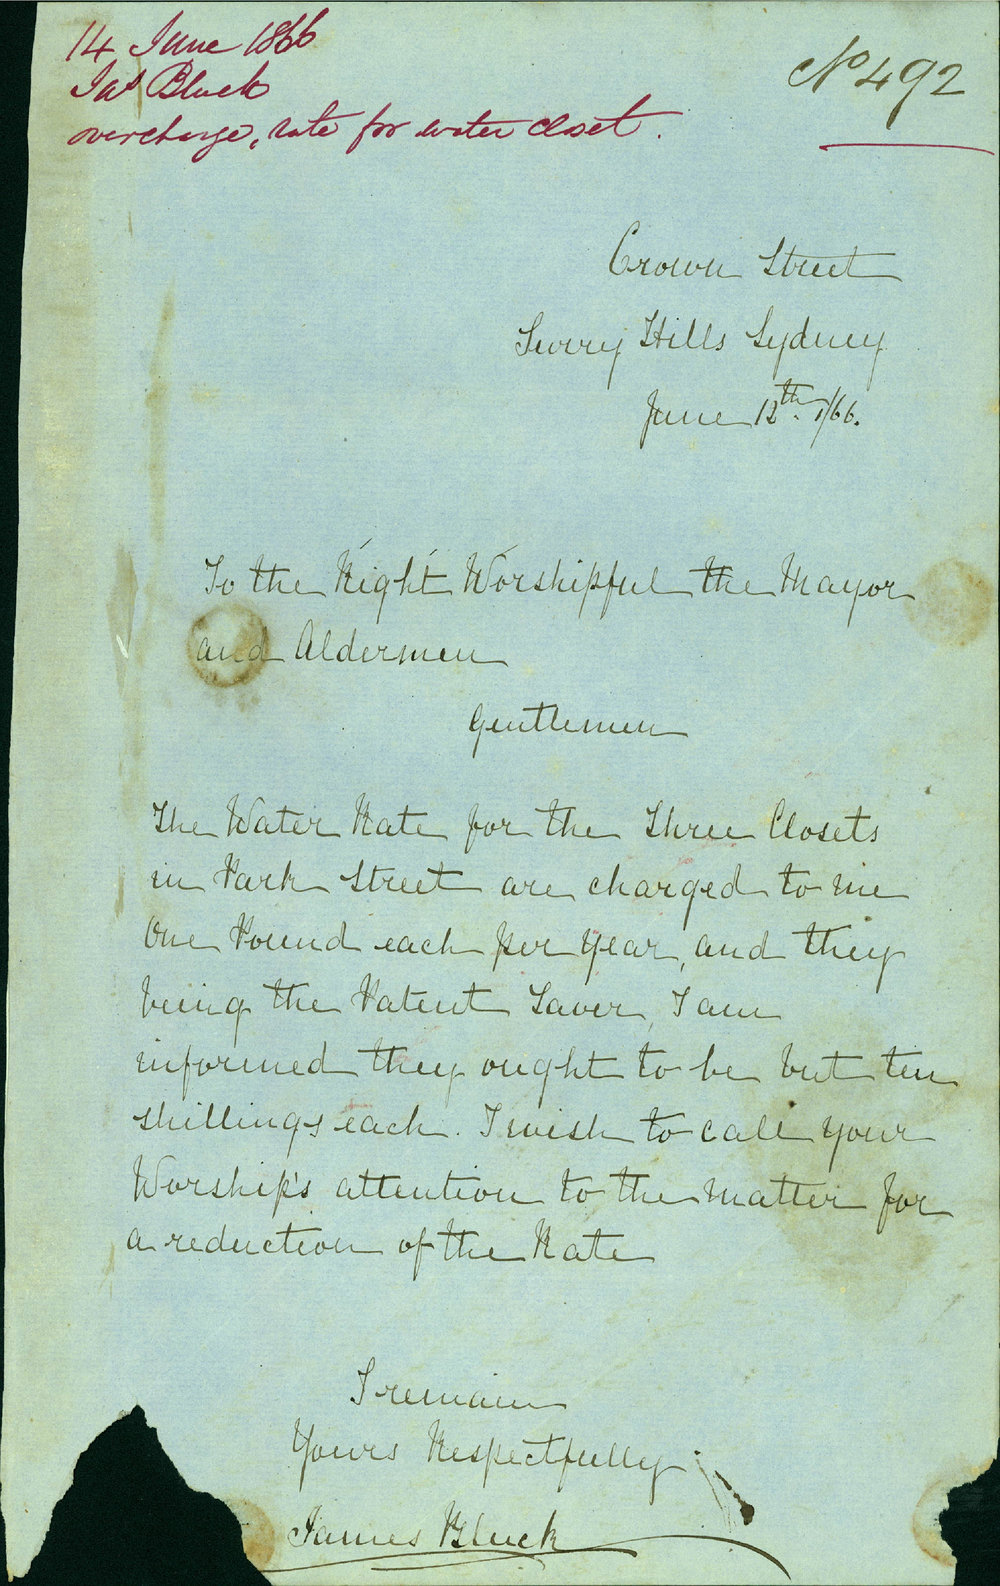 14 June 1866
Jas Bluck
overcharge, rate for water closet.
No 492
Crown Street
Surry Hills Sydney
June 12th 1/66.
To the Right Worshipful the Mayor
and Aldermen
Gentlemen
The Water Rate for the Three Closets
in Park Street are charged to me
One Pound each per year, and they
being the Patent Saver, I am
informed they ought to be but ten
shillings each. I wish to call your
Worship's attention to the matter for
a reduction of the Rate
I remain
Yours Respectfully
James Bluck